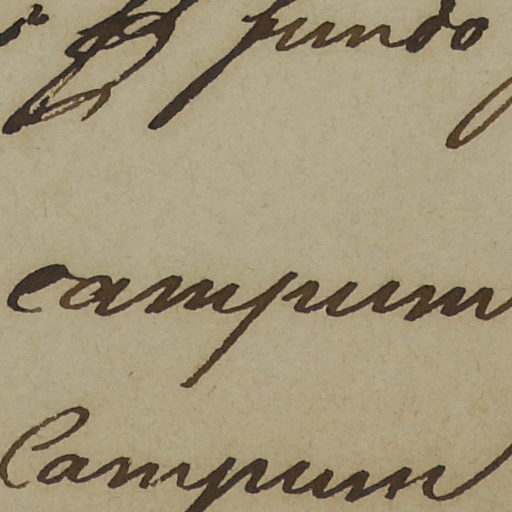 fundo
campum
Campum